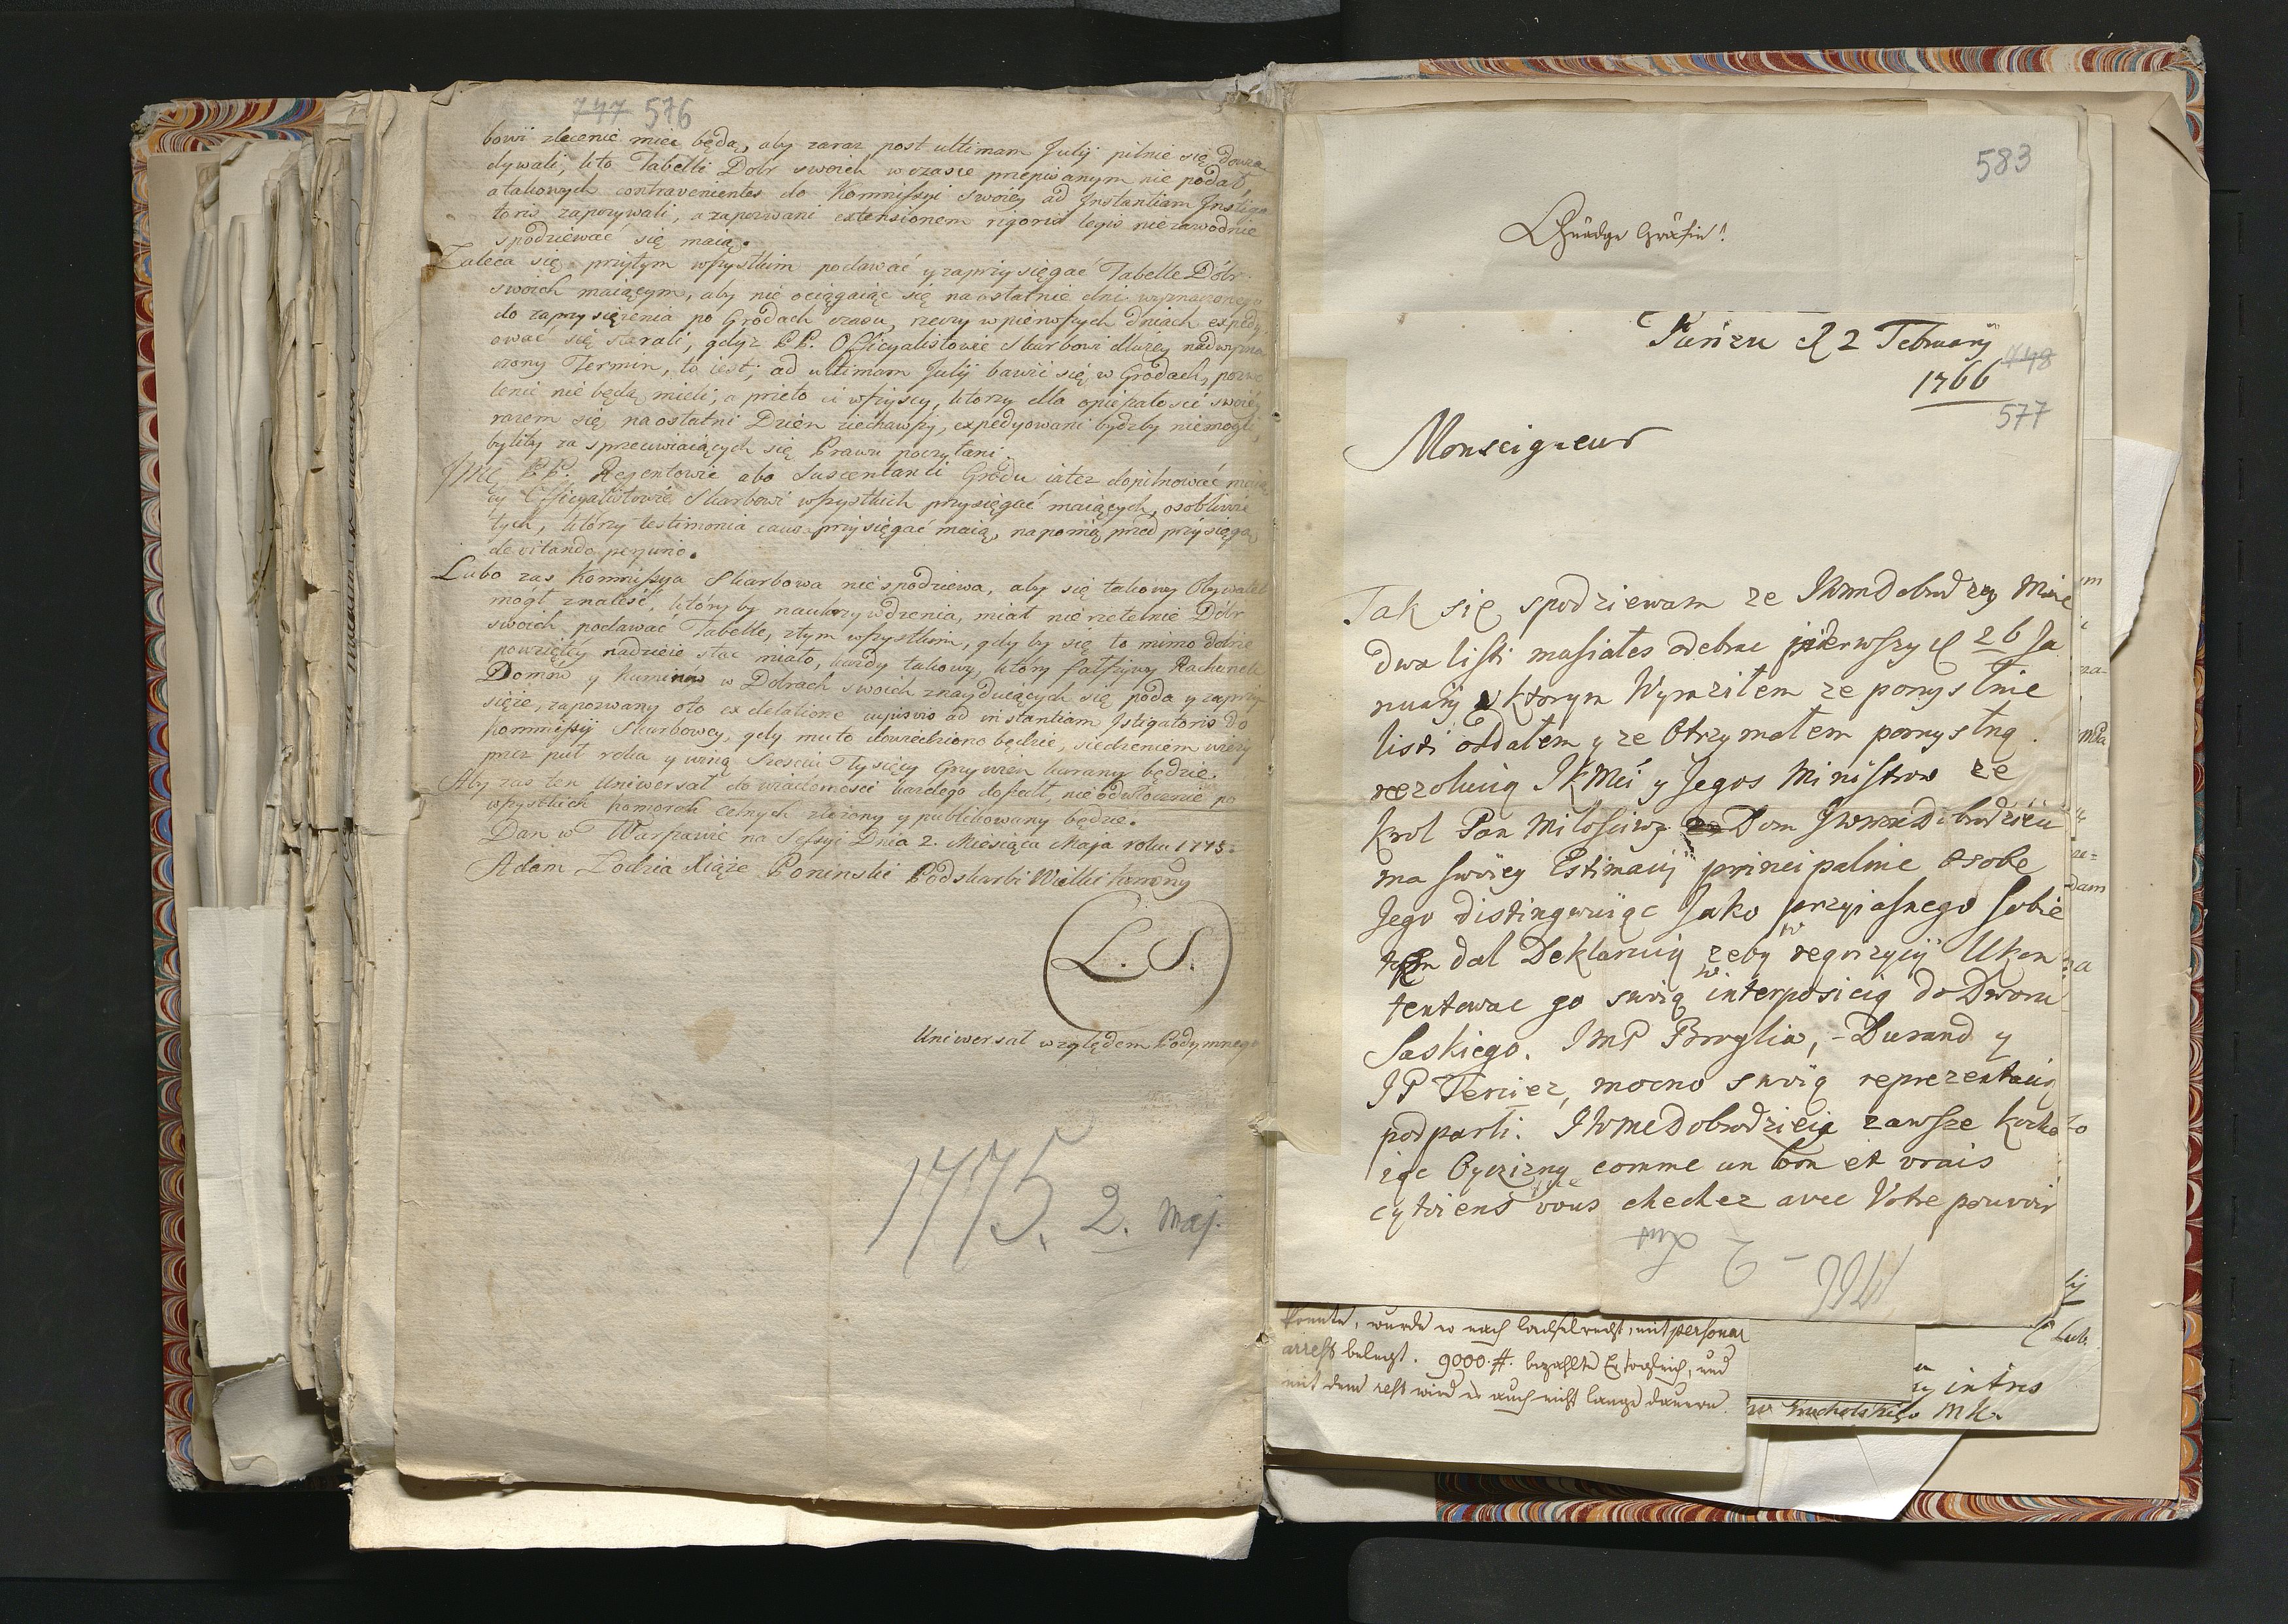 747 576
bowi zlecenie mieć będą, aby zaraz post ultimam Julij pilnie się dowia
dywali, kto Tabelli Dobr swoich w czasie przepisanym nie podał,
a takowych contravenientes do Kommissyi swoiey ad Instantiam Instiga
toris zapozywali, a zapozwani extensionem rigoris legis niezawodnie
spodziewać się maią.
Zaleca się przytym wszystkim podawać y zaprzysięgać Tabelle Dobr
swoich maiącym, aby nie ociągaiąc się na ostatnie dni wyznaczonego
do zaprzysiężenia po Grodach czasu, rzeczy w pierwszych dniach expedy
ować się starali, gdyż PP. Officyalistowie Skarbowi dłużey nad wyzna
czony Termin, to iest, ad ultimam Julij bawić się w Grodach, pozwo
lenie nie będą mieli, a przeto ci wszyscy, ktorzy dla opieszałości swoiey
razem się na ostatni Dzień ziechawszy, expedyowani bydźby niemogli,
byliby za sprzeciwiaiących się Prawu poczytani.
Ichmć PP. Regentowie abo Susceptanci Grodu iakoteż dopilnować maią
cy Officyalistowie Skarbowi wszystkich przysięgać maiących, osobliwie
tych, ktorzy testimonia causæ przysięgać maią, napomną przed przysięgą,
de vitando perjurio.
Lubo zas Kommissya Skarbowa nie spodziewa, aby się takowy Obywatel
mógł znaleść, któryby na ukrzywdzenia, miał nie rzetelnie Dóbr
swoich podawać Tabelle, z tym wszystkim, gdyby się to mimo dobrze
powziętey nadzieie stać miało, każdy takowy, który fałszywy Rachunek
Domów y Kominów w Dobrach swoich znayduiących się poda y zaprzy
sięże, zapozwany oto ex delatione cujusvis ad instantiam Istigatoris do
Kommissyi Skarbowey, gdy mu to dowiedziono będzie, siedzeniem wieży
przez puł roku y winą sześciu tysięcy Grzywien karany będzie.
Aby zas ten Uniwersał do wiadomości każdego doszedł, nieodwłocznie po
wszystkich Komorach Celnych złożony y publikowany będzie.
Dan w Warszawie na Sessyi Dnia 2. Miesiąca Maja roku 1775.
Adam Łodzia Xiąże Poninski Podskarbi Wielki Koronny
L. S.
Uniwersał względem Podymnego
1775. 2. Maj.
583
Gnädge Gräfin!
d 2 February
1766
448
577
Monseigneur
Tak się spodziewam ze JWmDobrodzey Mine
dwa listi musiałes odebrac pierwszy d 26 Ja
nuarij w ktorym Wyraziłem ze pomyslnie
listi oddałem y ze Otrzymałem pomyslną
rezolucią JKMci y Jegos Ministrow ze
Krol Pan Miłosciwy Dom JWmDobrodzieia
ma swoiey Estimacij principalnie Osobe
Jego distingwuiąc Jako przyiasnego sobie
dal Deklaracią zeby w Ukon
tentowac go swoią interposicią do Dworu
Saskiego. JmP Broglia, - Durand y
JP Tercier, mocno swoią reprezentacią
podparti. JWmeDobrodzieia zawsze kocha
iąc Oyczizny comme un bon et vrais
cytoiens vous chechez avec Votre pouvoir
1766 - 2 Lut
konnte, wurde er nach Wechselrecht, mit personal
arrest belegt. 9000 #. bezahlte Er sogleich, und
mit dem rest wird es auch nicht lange dauern.
intres